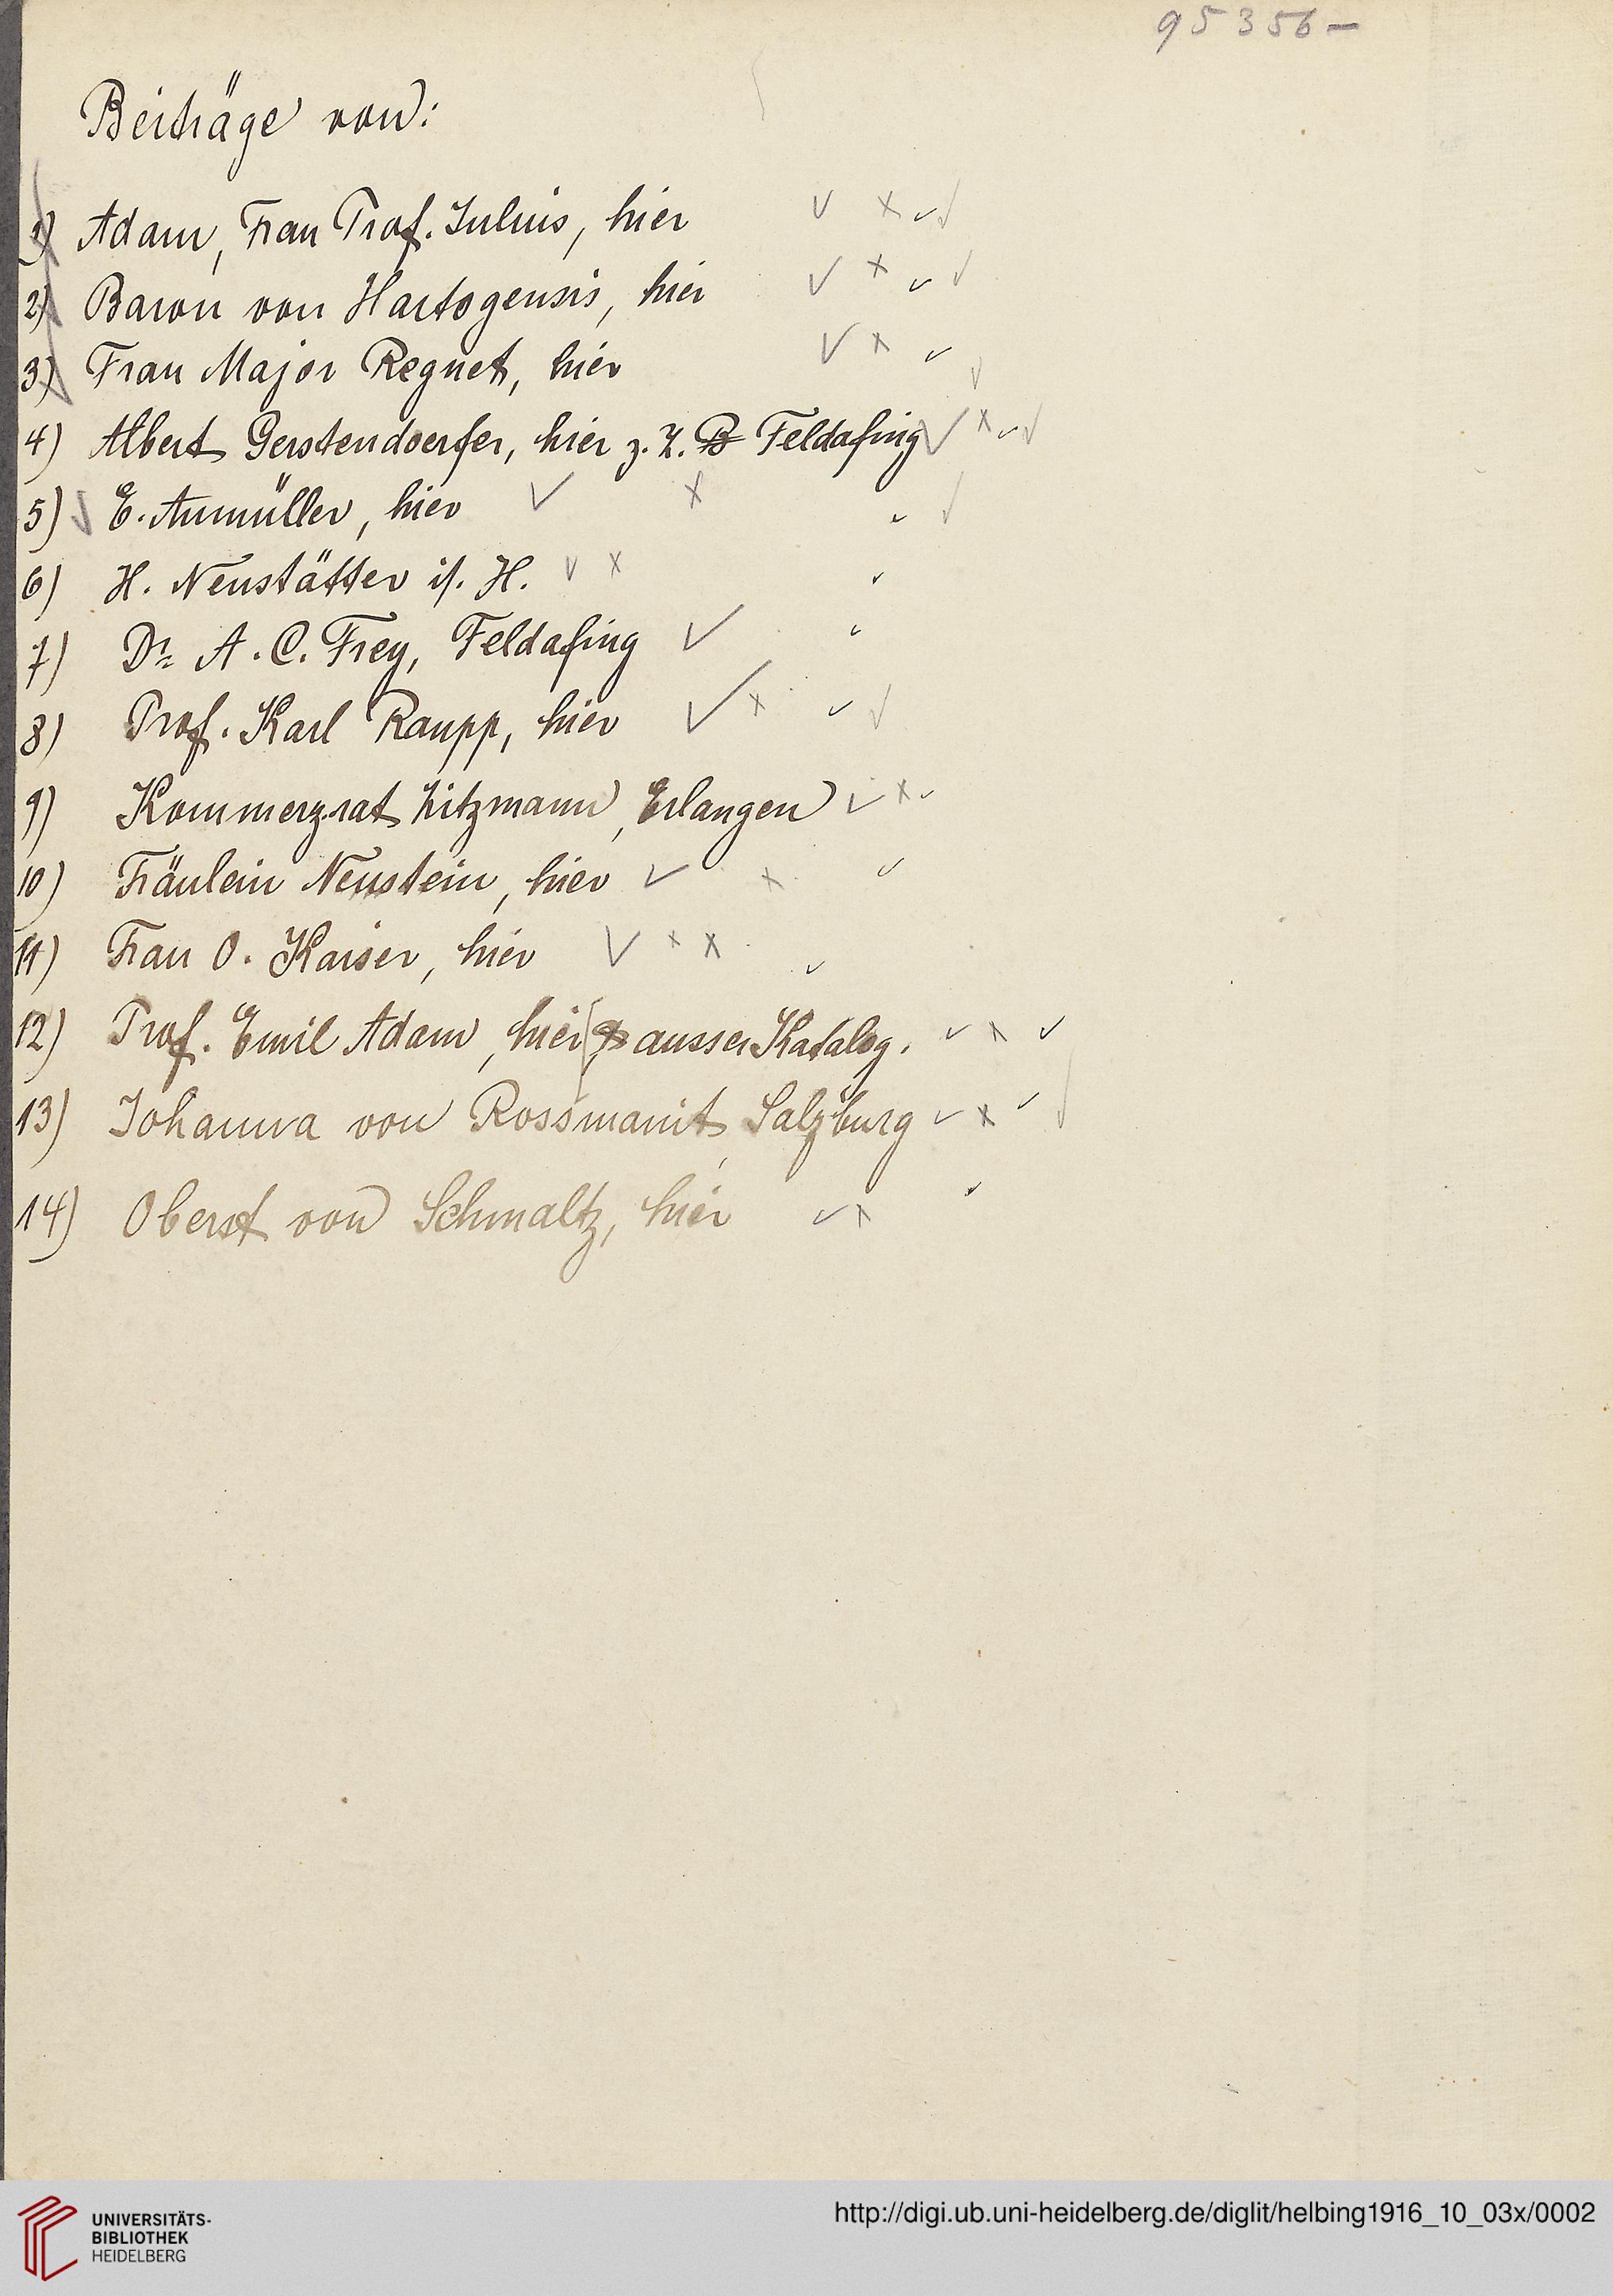 95356-
Beiträge von:
1) Adam, Frau Prof. Julius, hier
2) Baron von Hartogensis, hier
3) Frau Major Regnet, hier
4) Albert Gerstendoerfer, hier z. Z. B Feldafing
5) E. Aumüller, hier
6) H. Neustätter i/. H.
7) Dr. A. C. Frey, Feldafing
8) Prof. Karl Raupp, hier
9) Kommerzrat Zitzmann, Erlangen
10) Fräulein Neustein, hier
11) Frau O. Kaiser, hier
12) Prof. Emil Adam, hier ausser Katalog.
13) Johanna von Rossmanit, Salzburg
14) Oberst von Schmaltz, hier
UNIVERSITÄTS-
BIBLIOTHEK
HEIDELBERG
http://digi.ub.uni-heidelberg.de/diglit/helbing1916_10_03x/0002